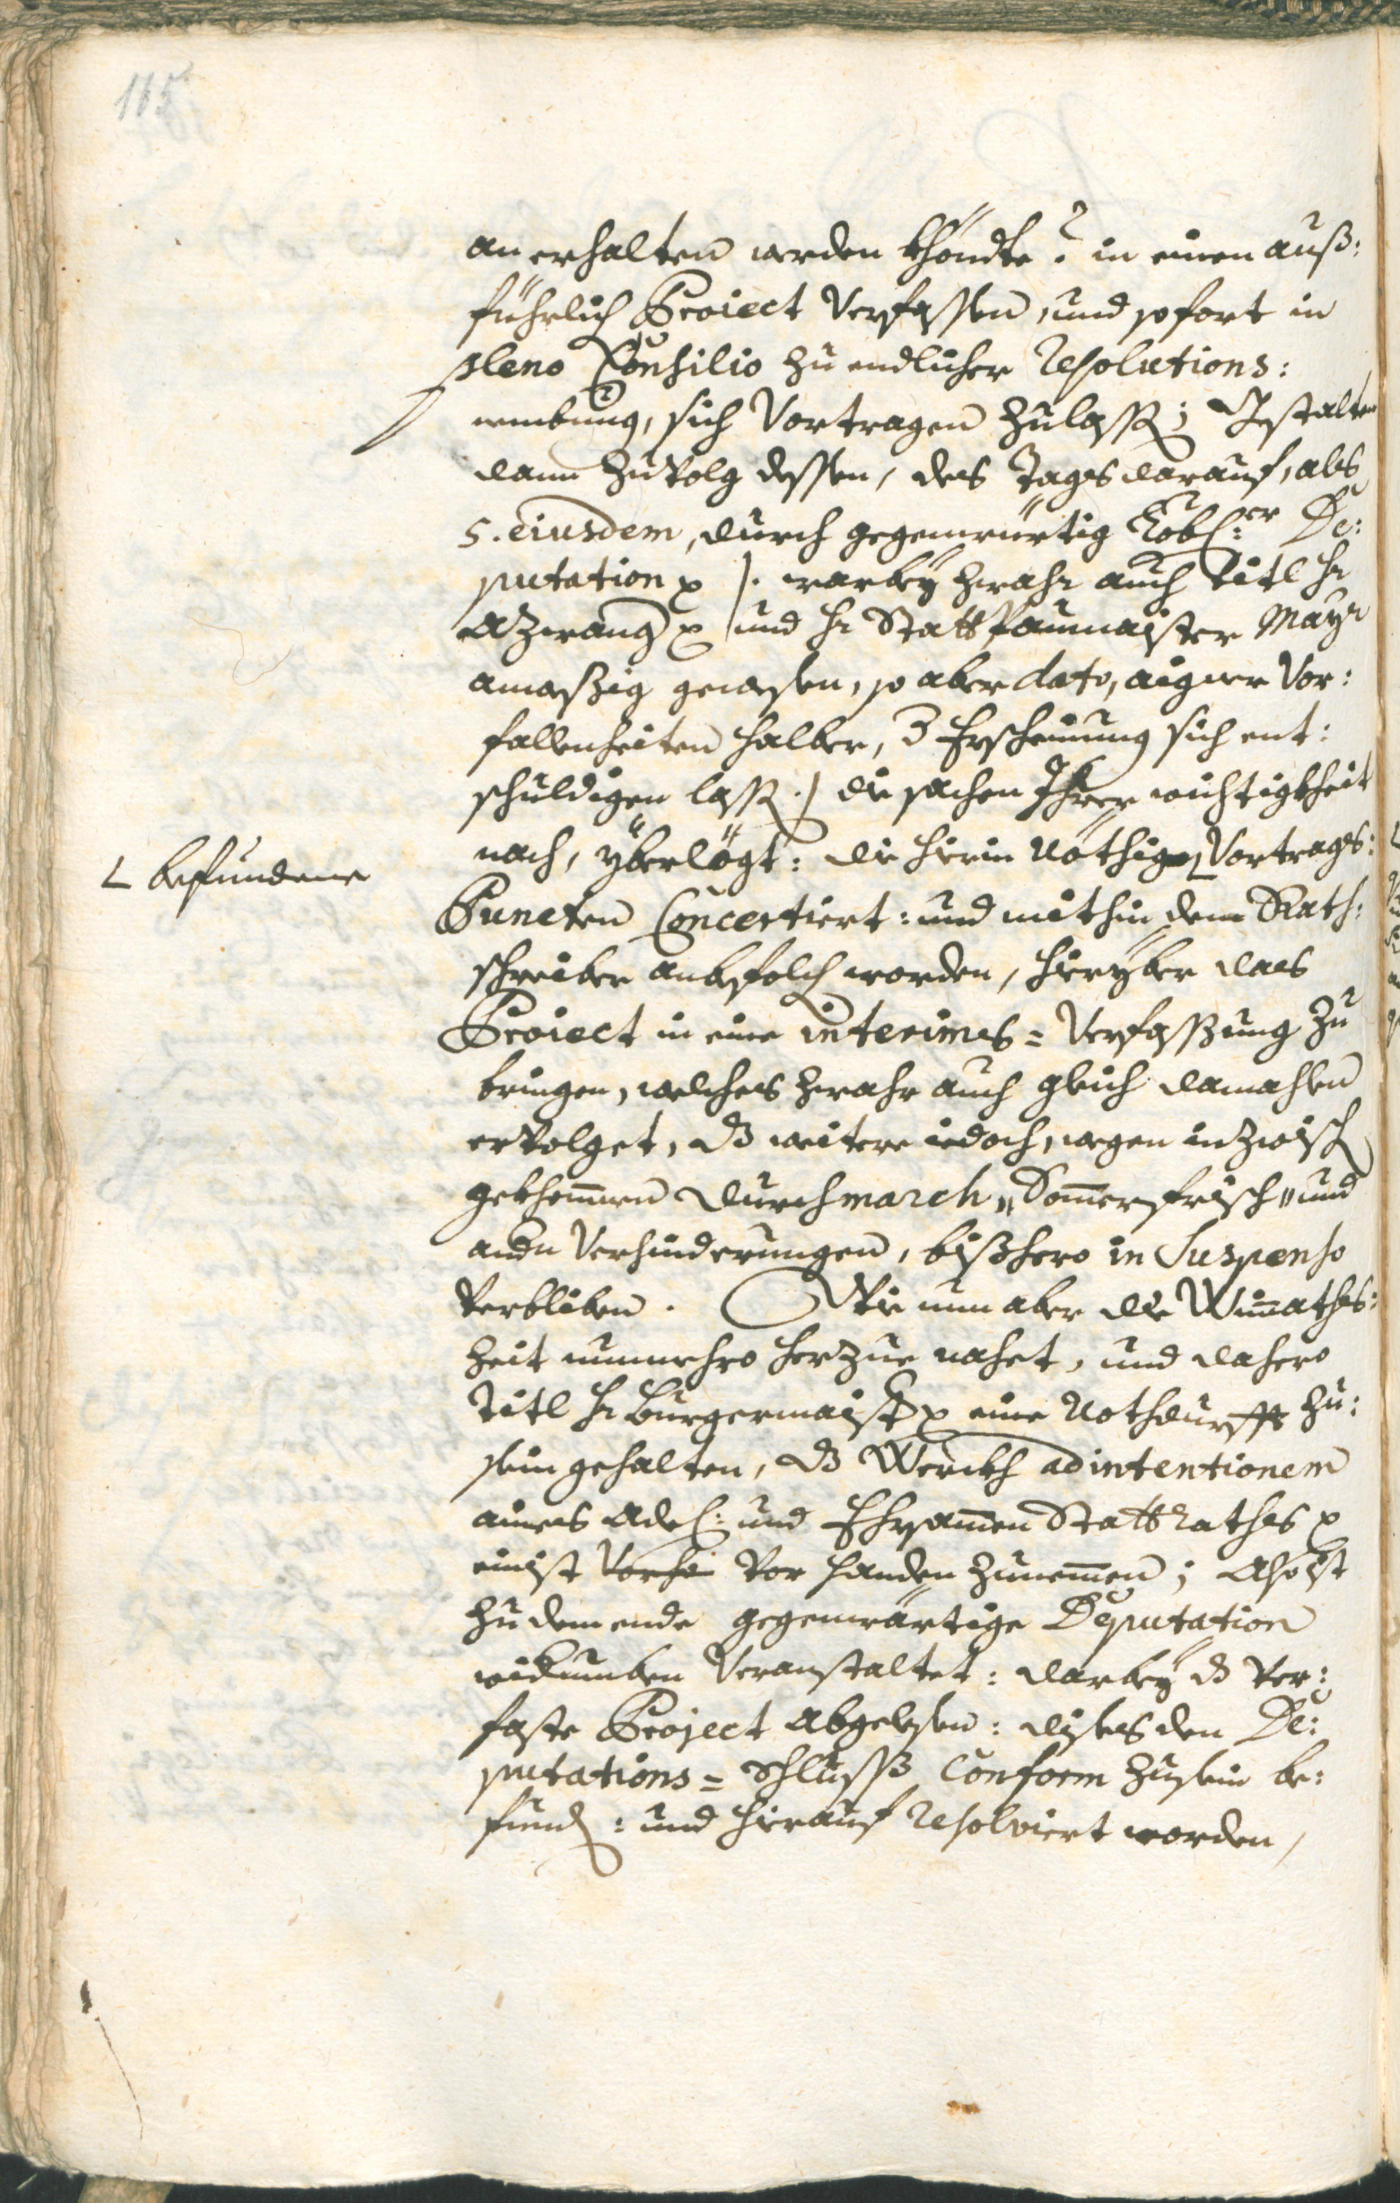 115
an erhalten werden khöndte? in einen auß:
führlich Proiect verfassen, und sofort in
pleno Consilio zu endlicher Resolutions:
nembung, sich vortragen zulassen; Gestalten
dann zuvolg dessen, des tags darauf, als
5. eiusdem, durch gegenwürtig Löbl:er De:
putation p /. warbey zwahr auch Titl Hr
Azwang p und Hr Stattpaumaister Mayr
anwesßig gewesen, so aber dato, aigner Vor:
fallenheiten halber, Erscheinung sich ent:
schuldigen lassen ./ die sachen Ihrer wichtigkheit
nach, yberlögt: die hierin nöthig Vortrags:
∟ befundene
Puncten Concertiert: und mithin dem Rath:
schreiber anbefolchen worden, hieryber das
Proiect in eine interims= Verfassung zu
bringen, welches zwahr auch gleich damahlen
ervolget, dz weitere iedoch, wegen inzwischen
gekhommen durchmarch, Sommerfrisch, und
andern Verhinderungen, bißhero in Suspenso
verbliben. Wie nun aber die Wimmaths:
Zeit nunmehro herzue nahet, und dahero
Titl Hr Burgermaister p eine Nothdurfft zu:
sein gehalten, dz Werckh ad intentionem
aines Adel: und Ehrsamen Stattrathes p
einist vor handen zunemmen; Also ist
zu dem ende gegenwärtige Deputation
widrumben veranstaltet: darbey dz ver:
faste Project abgelesen: dises den De:
putations= Schlusß Conform zusein be:
funden: und hierauf resolviert worden,